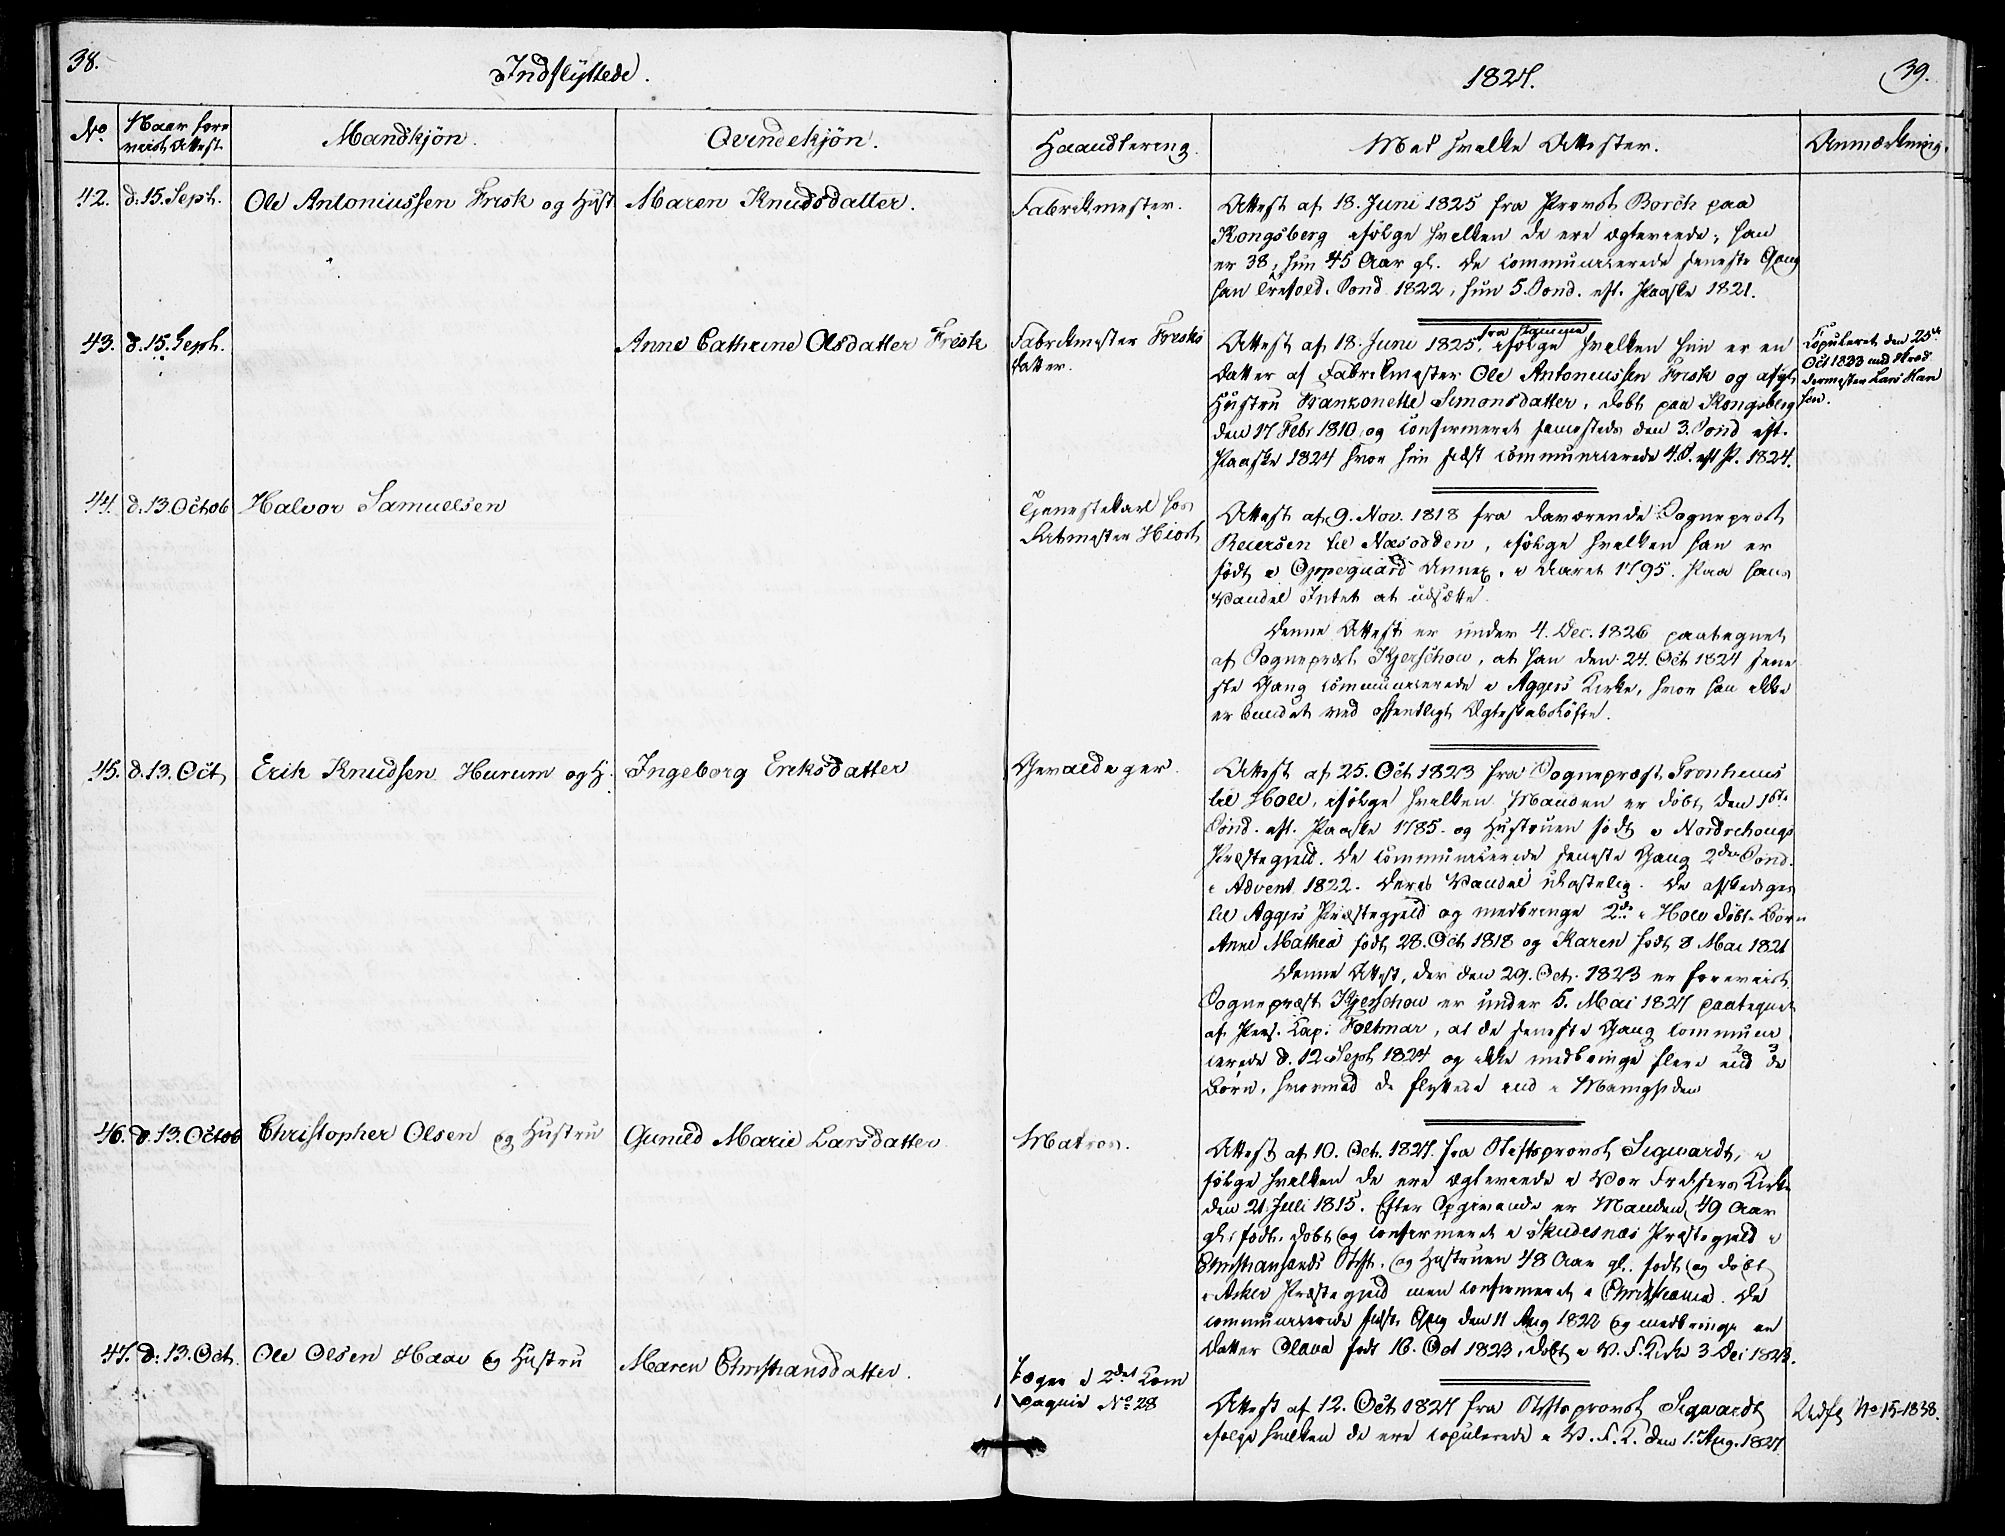 38.
Indflyttede.
1827.
39.
No.
Naar fore
viist Attest.
Mandkjön.
Qvindekjön.
Haandtering.
Med hvilke Attester.
Anmærkning.
42. d. 15. Sept. Ole Antoniussen Frisk og Hust Maren Knudsdatter. Fabrikmester.
Attest af 18. Juni 1825 fra Provst Borch paa
Kongsberg ifölge hvilken de ere ægteviede; han
er 38, hun 45 Aar gl. De communicerede seneste Gang
han Trefold. Sönd. 1822, hun 5. Sönd. eft. Paaske 1821.
43. d. 15. Sept. Anne Cathrine Olsdatter Frisk Fabrikmester Frisks
Datter.
Attest af 18. Juni 1825 fra samme ifölge hvilken hun er en
Datter af Fabrikmester Ole Antoniussen Frisk og afgl.
Hustru Simonsdatter, döbt paa Kongsberg
den 17 Febr 1810 og confirmeret samesteds den 3. Sönd eft.
Paaske 1824 hvor hun sidst communicerede 4. S. eft P. 1824.
Copuleret den 25de
Oct 1833 med Skræd
dermester Lars Han
sen.
44. d. 13. Octob Halvor Samuelsen Tjenestekarl hos
Hiort
Attest af 9. Nov. 1818 fra daværende Sognepræst
Reiersen til Næsodden, ifölge hvilken han er
födt i Oppegaard Annex, i Aaret 1795. Paa hans
Vandel Intet at udsætte.
Denne Attest er under 4. Dec. 1826 paategnet
af Sognepræst Kjerschow, at han den 24. Oct 1824 sene
ste Gang communicerede i Aggers Kirke, hvor han ikke
er bundet ved offentligt Ægteskabslöfte.
45. d. 13. Oct Erik Knudsen Hurum og H. Ingeborg Eriksdatter Gevaldeger.
Attest af 25. Oct 1823 fra Sognepræst
til Hole, ifölge hvilken Manden er döbt den 1ste
Sönd. eft. Paaske 1785. og Hustruen födt i Nordrehougs
Præstegjeld. De communicerede seneste Gang 2den Sönd.
i Advent 1822. Deres Vandel ulastelig. De afskediges
til Aggers Præstegjeld og medbringe 2de i Hole döbte Börn
Anne Mathea födt 28. Oct 1818 og Karen födt 8 Mai 1821
Denne Attest, der den 29. Oct. 1823 er foreviist
Sognepræst Kjerschow er under 5. Mai 1827 paategnet
af Pers. Cap. Holtmar, at de seneste Gang commune
cerede d. 12. Sept 1824 og ikke medbringe flere end de
Börn, hvormed de flyttede ind i Menigheden
46. d. 13. Octob Christopher Olsen og Hustru Gunild Marie Larsdatter Matros.
Attest af 10. Oct. 1827. fra Stiftsprovst Sigwardt, i
fölge hvilken de ere ægteviede i Vor Frelsers Kirke
den 21 Juli 1815. Efter Opgivende er Manden 49 Aar
gl., födt, döbt og confirmeret i Skudesnæs Præstegjeld i
Christiansands Stift, og Hustruen 48 Aar gl. födt og döbt
i Asker Præstegjeld men confirmeret i Christiania. De
communicerede sidste Gang den 11 Aug 1822 og medbringe en
Datter Olava födt 16. Oct 1823, döbt i V. F. Kirke 3 Dec 1823.
47. d. 13. Oct. Ole Olsen Haae og Hustru Maren Christiansdatter. Jæger i 2det Com
pagnie No 28
Attest af 12. Oct 1827 fra Stiftsprovst Sigwardt
ifölge hvilken de ere copulerede i V. F. K. den 1. Aug. 1827.
Udfl No 15-1838.